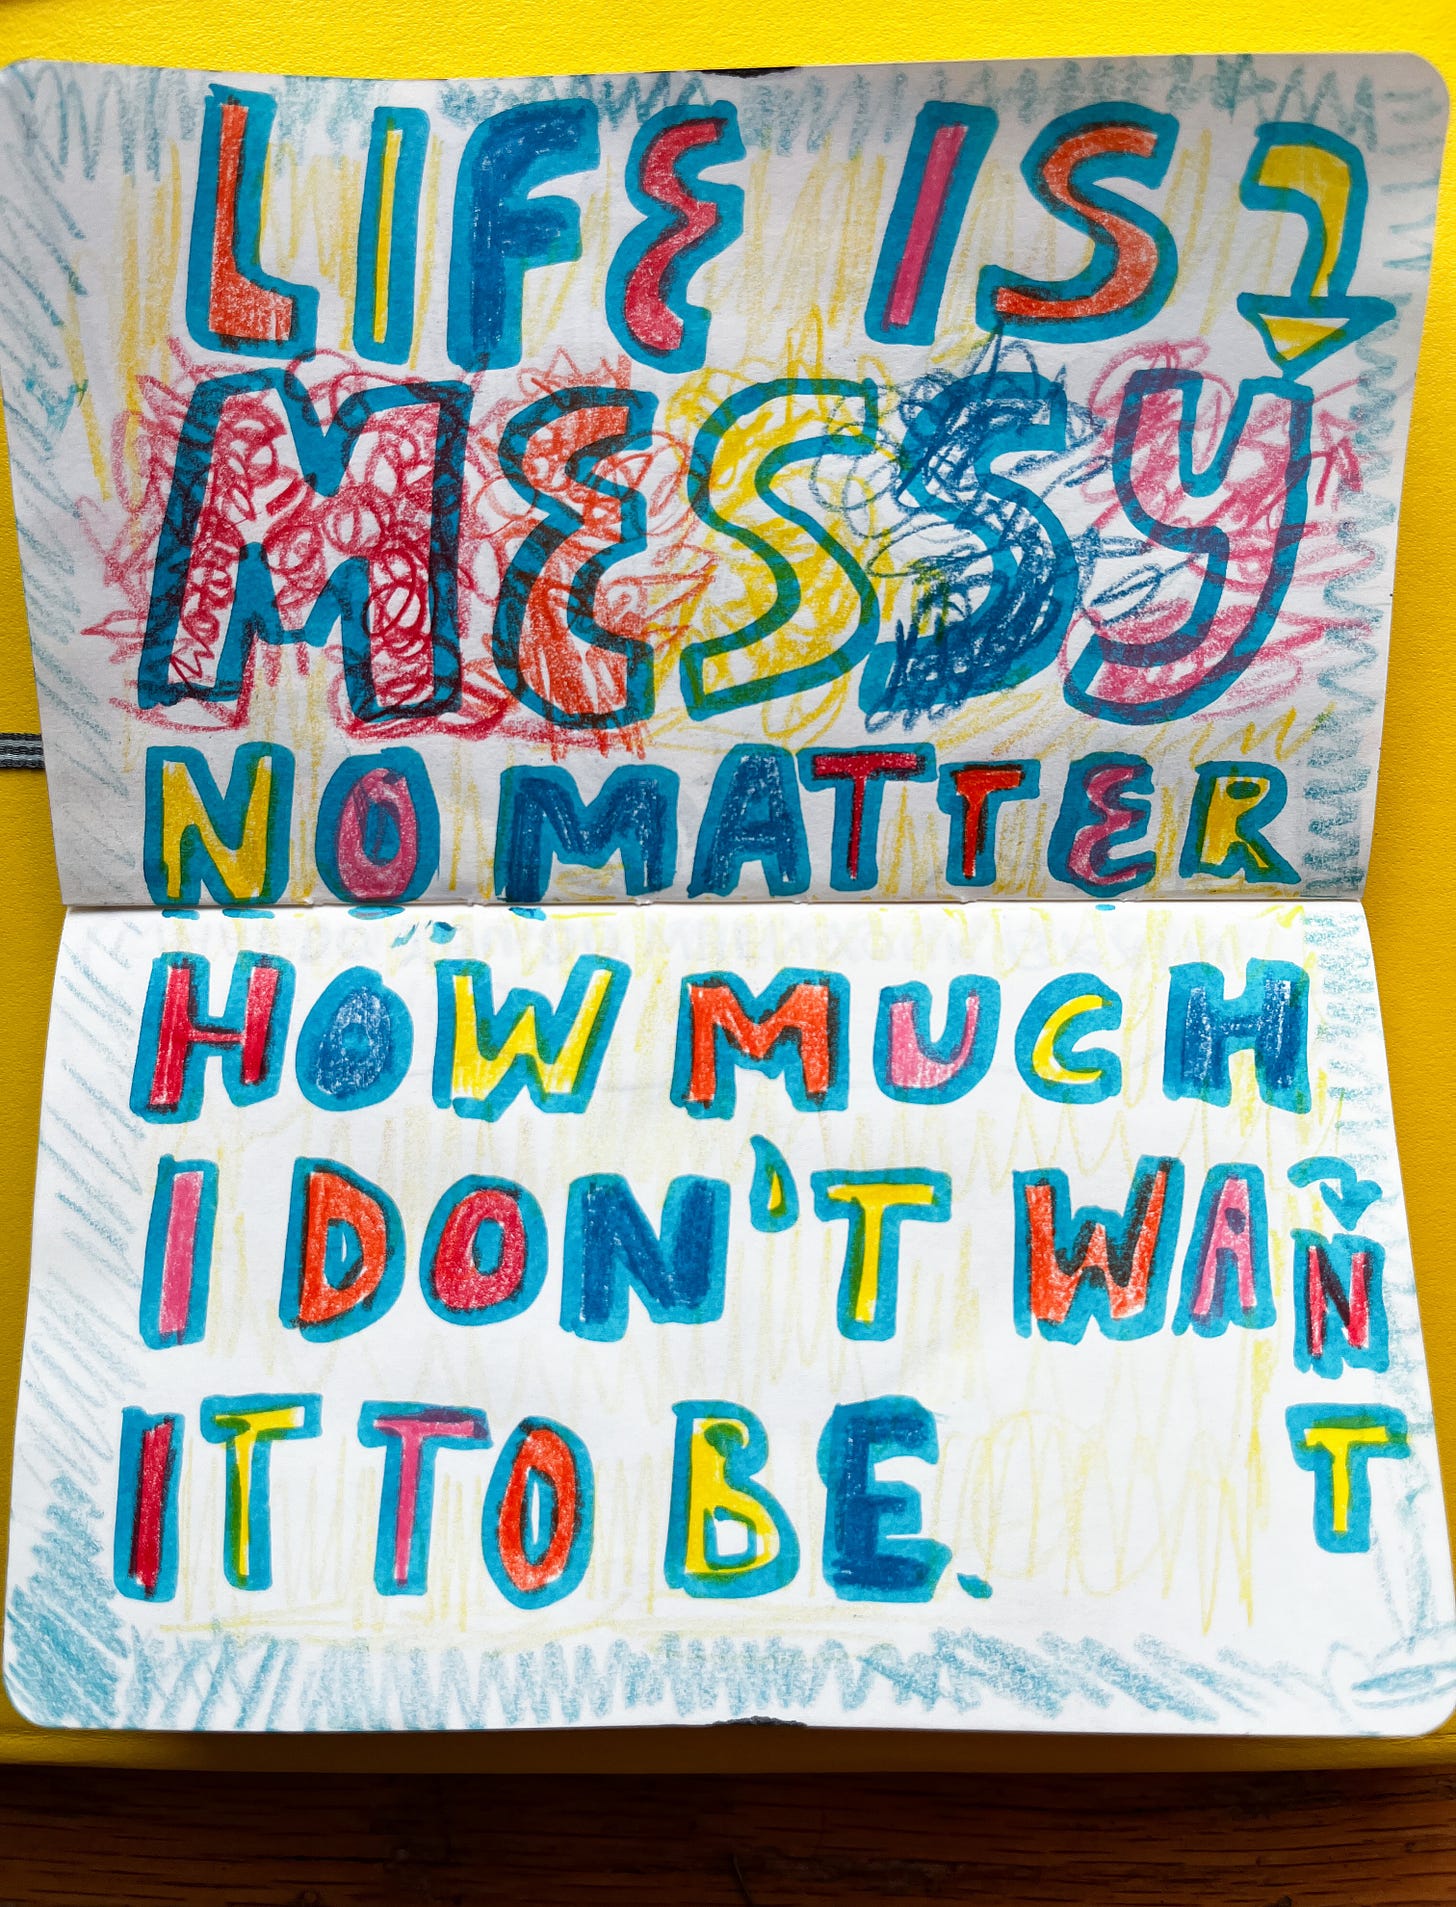 LIFE IS
MESSY
NO MATTER
HOW MUCH
I DON'T WANT
IT TO BE.